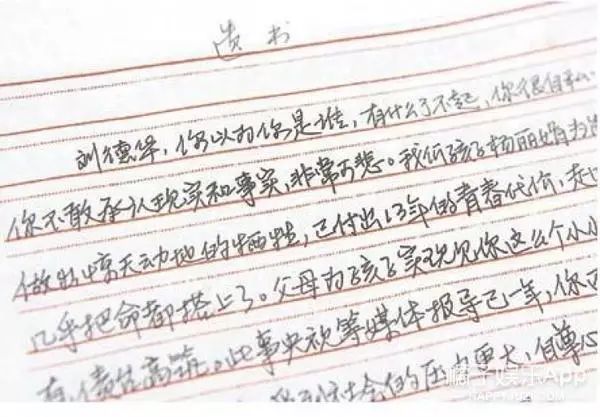 遗书
刘德华,你以为你是谁,有什么了不起,你很自私
你不敢承认现实和事实,非常可悲。我们孩子杨丽娟为
做出惊天动地的牺牲,已付出13年的青春代价,
几乎把命都搭上了。父母为孩子实现见你这么个小小
债台高筑。此事央视等媒体报导已一年,你
社会的压力更大,自尊心
橘子娱乐App
HAPPYJUZI.COM